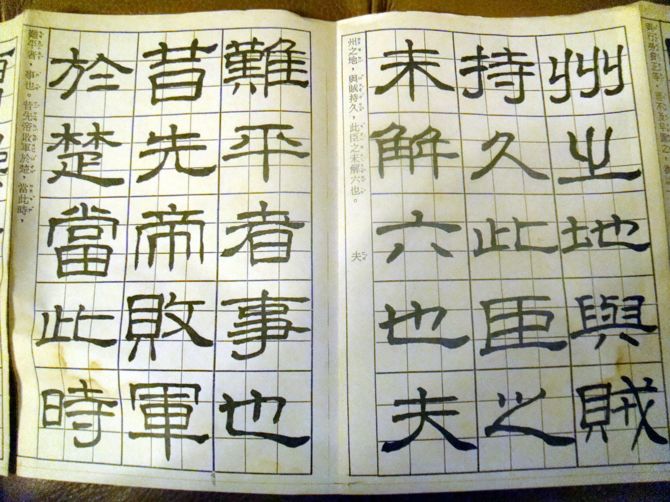 州之地與賊
持久此臣之
未解六也夫
州之地，與賊持久，此臣之未解六也。 夫
難平者事也
昔先帝敗軍
於楚當此時
難平者，事也。昔先帝敗軍於楚，當此時，